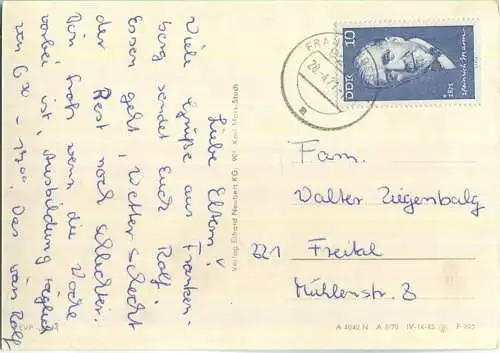 Liebe Eltern!
Viele Grüße aus Franken-
berg sendet Euch Rolf.
Essen geht, Wetter schlecht
der Rest noch schlechter.
Bin froh wenn die Woche
vorbei ist, Ausbildung täglich
von 6 00 - 17 00. Das wär's Rolf
Verlag Erhard Neubert KG, 901 Karl-Marx-Stadt
DDR 10
1871
Heinrich Mann
FRA
28.4.71
a
Fam.
Walter Ziegenbalg
221 Freital
Mühlenstr. 8
EVP
A 4040 N A 8/70 IV-14-45 F 303